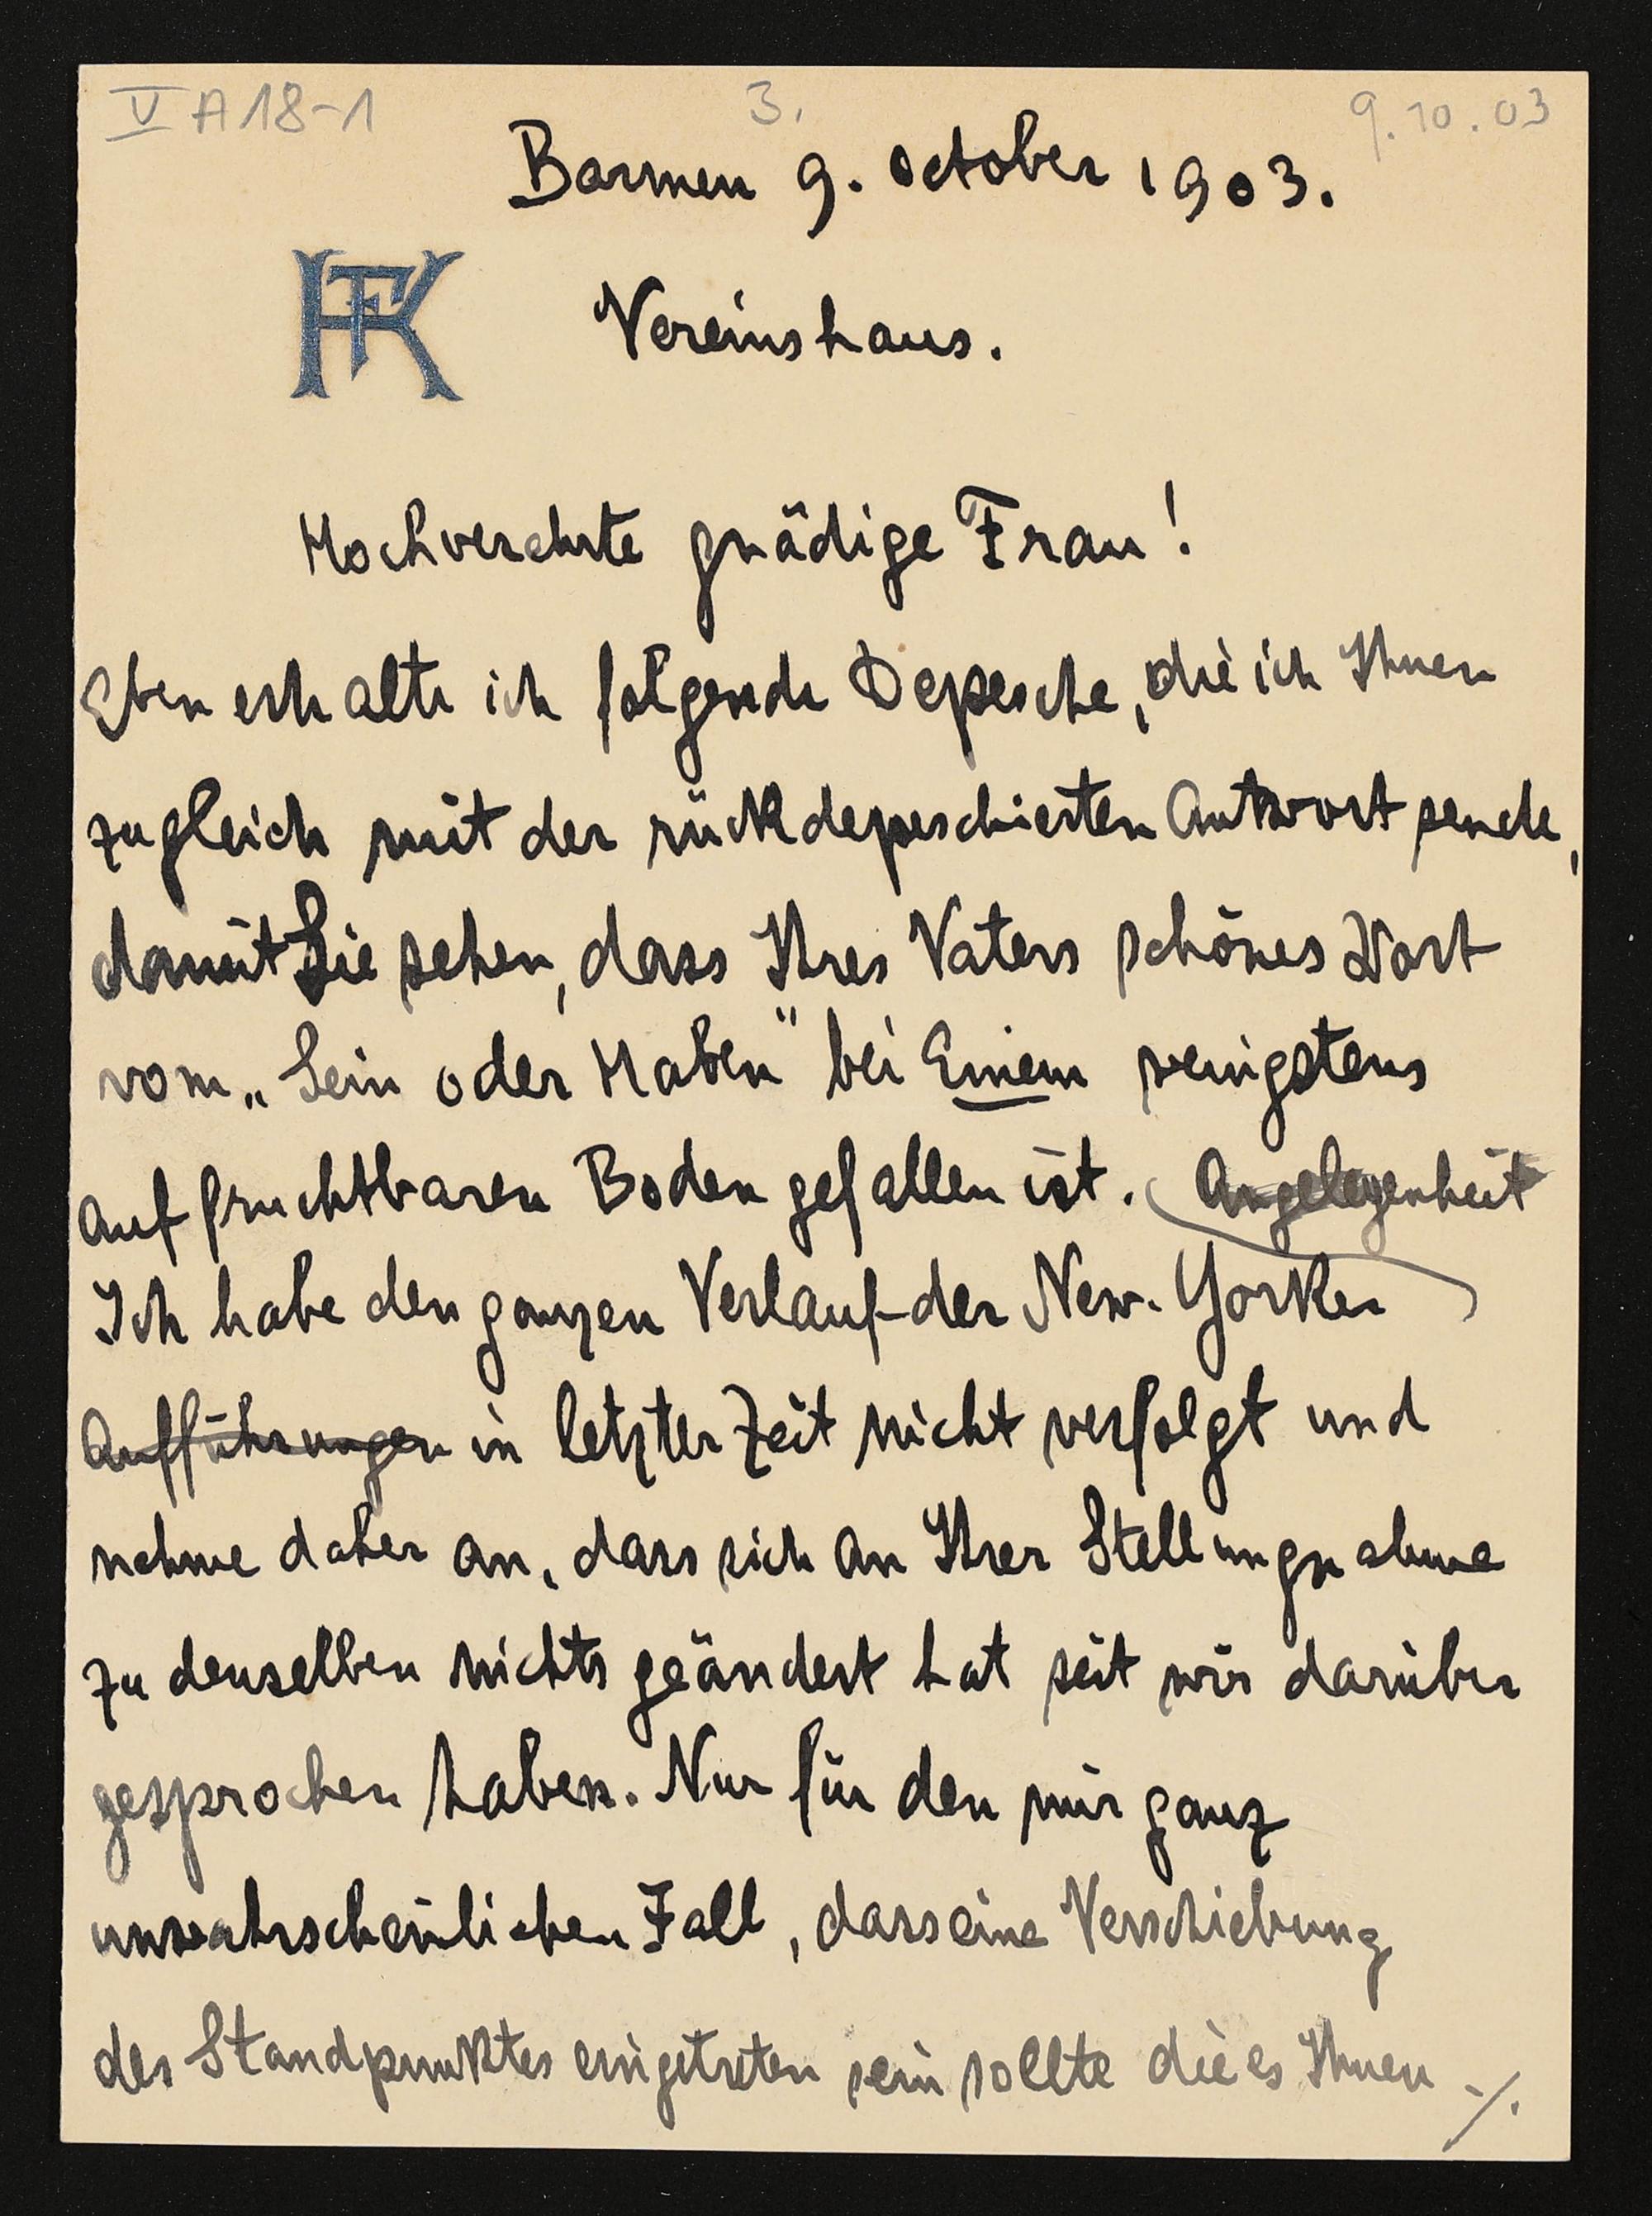 V A 18-1
3.
9.10.03
Barmen 9. October 1903.
HFK
Vereinshaus.
Hochverehrte gnädige Frau!
Eben erhalte ich folgende Depesche, die ich Ihnen
zugleich mit der rückdepeschierten Antwort sende,
damit Sie sehen, dass Ihres Vaters schönes Wort
vom „Sein oder Haben" bei Einem wenigstens
auf fruchtbaren Boden gefallen ist. Angelegenheit
Ich habe den ganzen Verlauf der New-Yorker
Aufführungen in letzter Zeit nicht verfolgt und
nehme daher an, dass sich an Ihrer Stellungnahme
zu denselben nichts geändert hat seit wir darüber
gesprochen haben. Nur für den mir ganz
unwahrscheinlichen Fall, dass eine Verschiebung
des Standpunktes eingetreten sein sollte die es Ihnen ./.